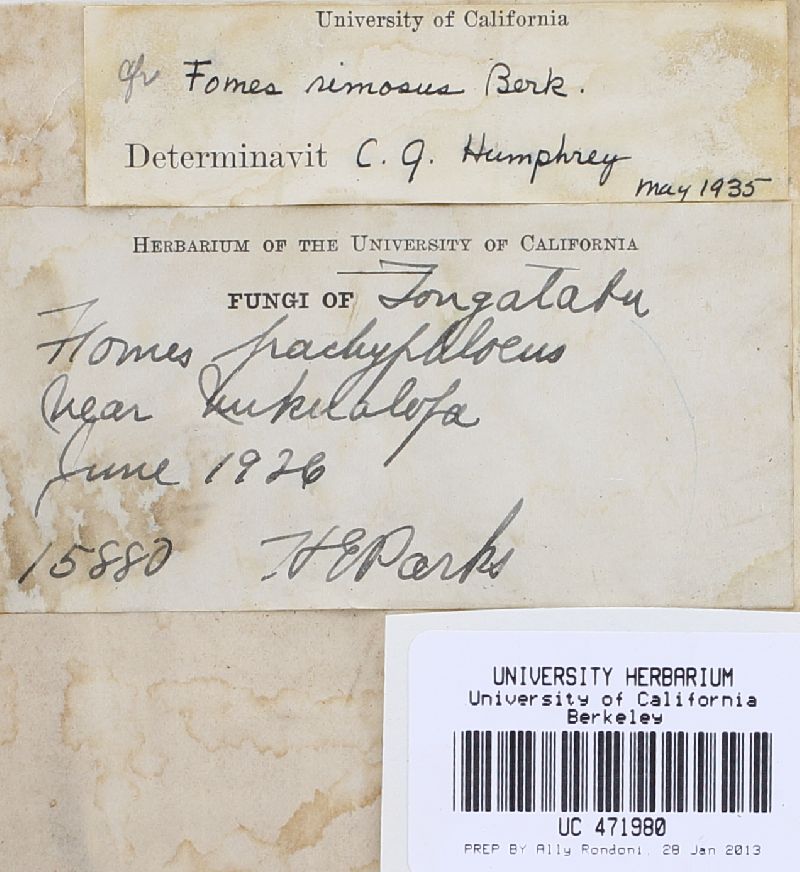 University of California
Fomes rimosus Berk.
Determinavit C. J. Humphrey
May 1935
HERBARIUM OF THE UNIVERSITY OF CALIFORNIA
FUNGI OF Tongatabu
Fomes pachyphloeus
near Nukualofa
June 1926
15880 H E Parks
UNIVERSITY HERBARIUM
University of California
Berkeley
UC 471980
PREP BY Ally Rondoni, 28 Jan 2013